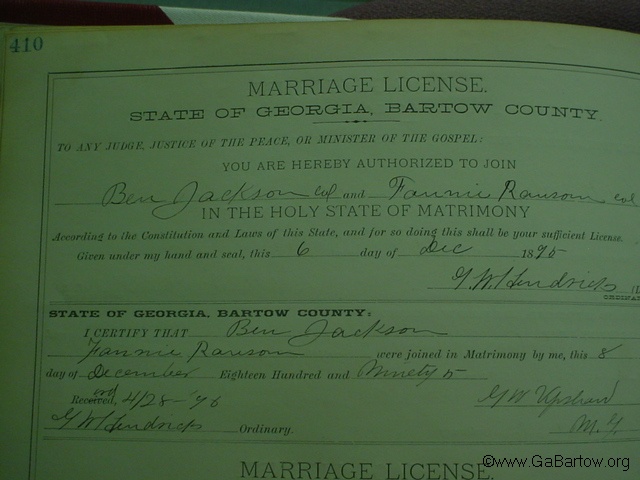 410
MARRIAGE LICENSE.
STATE OF GEORGIA, BARTOW COUNTY.
TO ANY JUDGE, JUSTICE OF THE PEACE, OR MINISTER OF THE GOSPEL:
YOU ARE HEREBY AUTHORIZED TO JOIN
Ben Jackson col and Fannie Ransom col
IN THE HOLY STATE OF MATRIMONY
According to the Constitution and Laws of this State, and for so doing this shall be your sufficient License.
Given under my hand and seal, this 6 day of Dec 1895
G.W. Hendricks
STATE OF GEORGIA, BARTOW COUNTY:
I CERTIFY THAT Ben Jackson
Fannie Ransom were joined in Matrimony by me, this 8
day of December Eighteen Hundred and Ninety 5
Received, 4/28-'96 G W Upshaw
G W Hendricks Ordinary. M.G.
MARRIAGE LICENSE.
©www.GaBartow.org